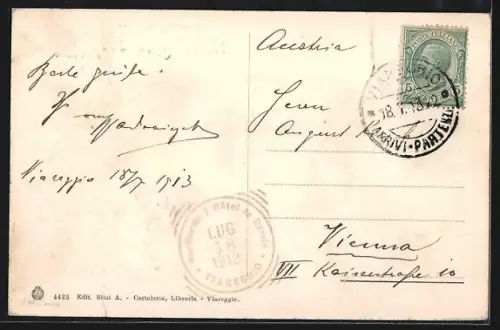 Beste Grüße!
Viareggio 18/7 1913
Austria
Herrn
August
Vienna
VII Kaiserstraße 10
POSTE ITALIANE
VIAREGGIO
18.7.13
ARRIVI-PARTENZE
Hôtel de Russie
LUG
18
1913
VIAREGGIO
4423 Edit. Stini A. - Cartoleria, Libreria - Viareggio.